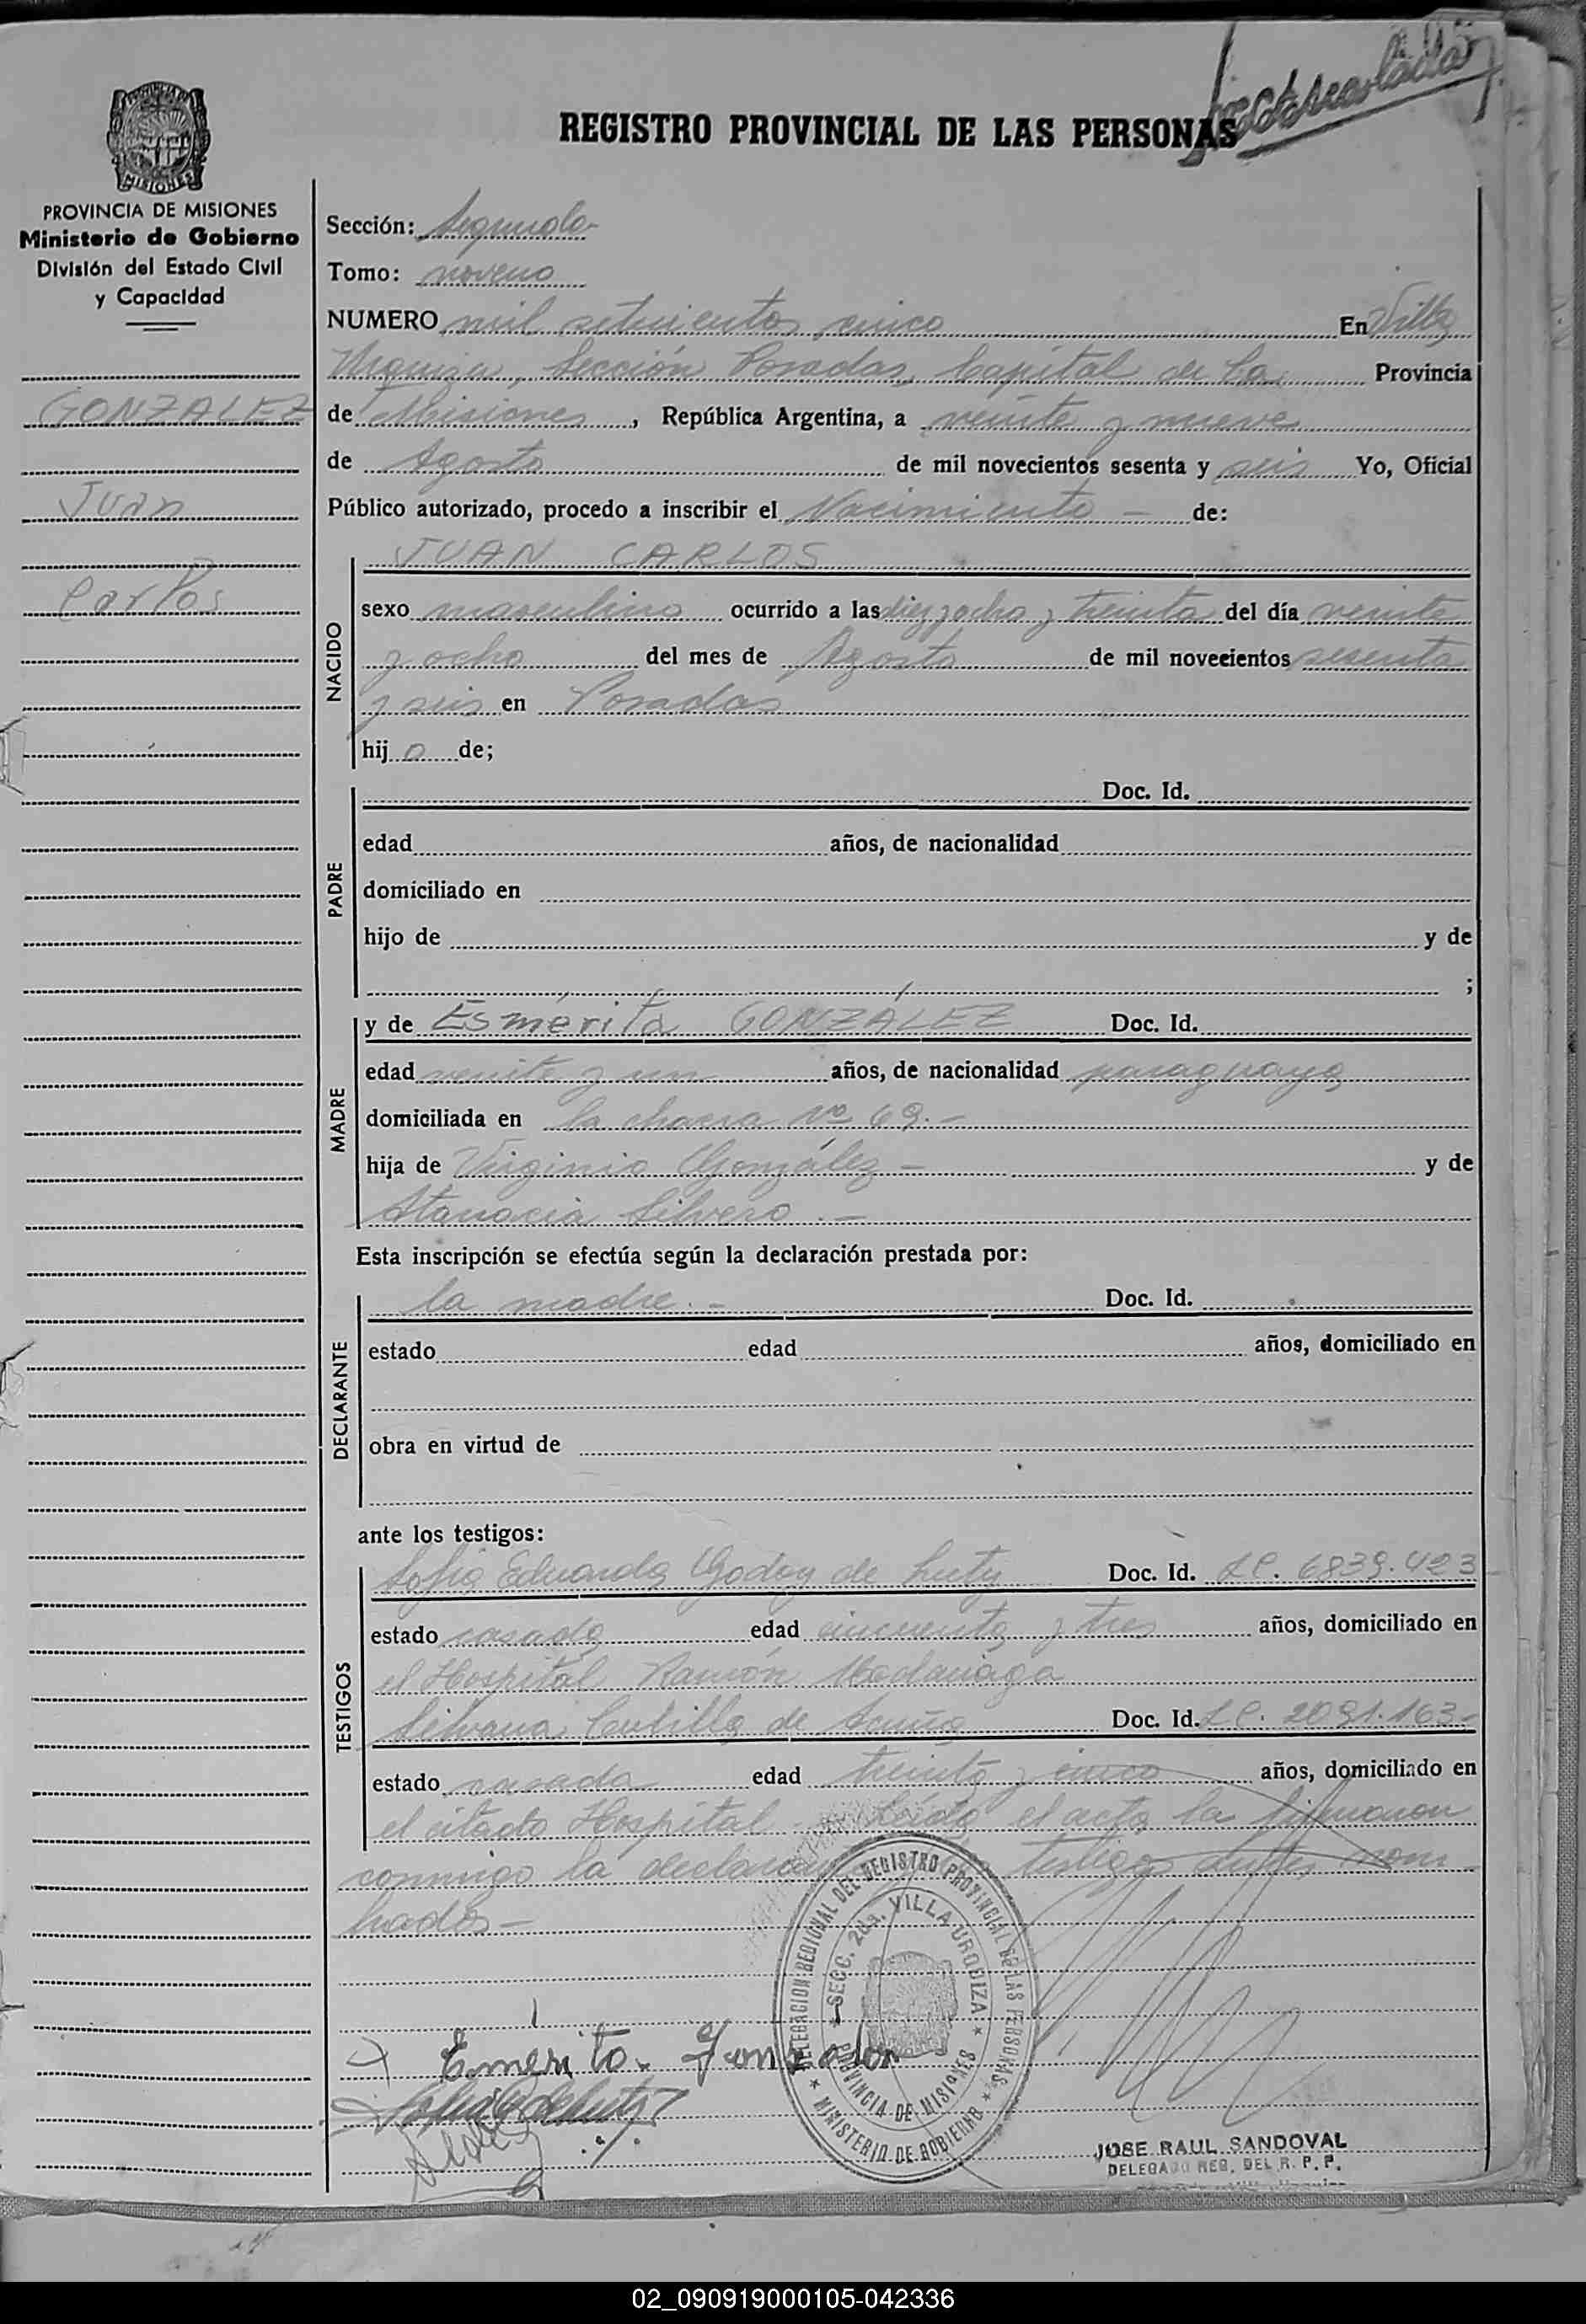 REGISTRO PROVINCIAL DE LAS PERSONAS
MISIONES
PROVINCIA DE MISIONES
Ministerio de Gobierno
División del Estado Civil
y Capacidad
GONZALEZ
Juan
Carlos
Sección: Segunda
Tomo: noveno
NUMERO mil setecientos cinco En Villa
Urquiza, Sección Posadas, Capital de la Provincia
de Misiones, República Argentina, a veinte y nueve
de Agosto de mil novecientos sesenta y seis Yo, Oficial
Público autorizado, procedo a inscribir el Nacimiento - de:
NACIDO
JUAN CARLOS
sexo masculino ocurrido a las diez y ocho y treinta del día veinte
y ocho del mes de Agosto de mil novecientos sesenta
y seis en Posadas
hij o de;
PADRE
Doc. Id.
edad años, de nacionalidad
domiciliado en
hijo de y de
;
MADRE
y de Esmérita GONZÁLEZ Doc. Id.
edad veinte y un años, de nacionalidad paraguaya
domiciliada en la chacra Nº 69.-
hija de Virginio González - y de
Atanacia Silvero.-
Esta inscripción se efectúa según la declaración prestada por:
DECLARANTE
la madre.- Doc. Id.
estado edad años, domiciliado en
obra en virtud de
ante los testigos:
TESTIGOS
Sofia Eduarda Godoy de Doc. Id. LC. 6839.423
estado casada edad cincuenta y tres años, domiciliado en
el Hospital Ramón Madariaga
Silvana de Acuña Doc. Id. LC. 2091.163-
estado casada edad treinta y cinco años, domiciliado en
el citado Hospital Leida el acta la firmaron
conmigo la testigos antes nom
brados-
DELEGACION REGIONAL DEL REGISTRO PROVINCIAL DE LAS PERSONAS
SECC. 2da. VILLA URQUIZA
PROVINCIA DE MISIONES
MINISTERIO DE GOBIERNO
Emérita
JOSE RAUL SANDOVAL
DELEGADO REG. DEL R. P. P.
02_090919000105-042336